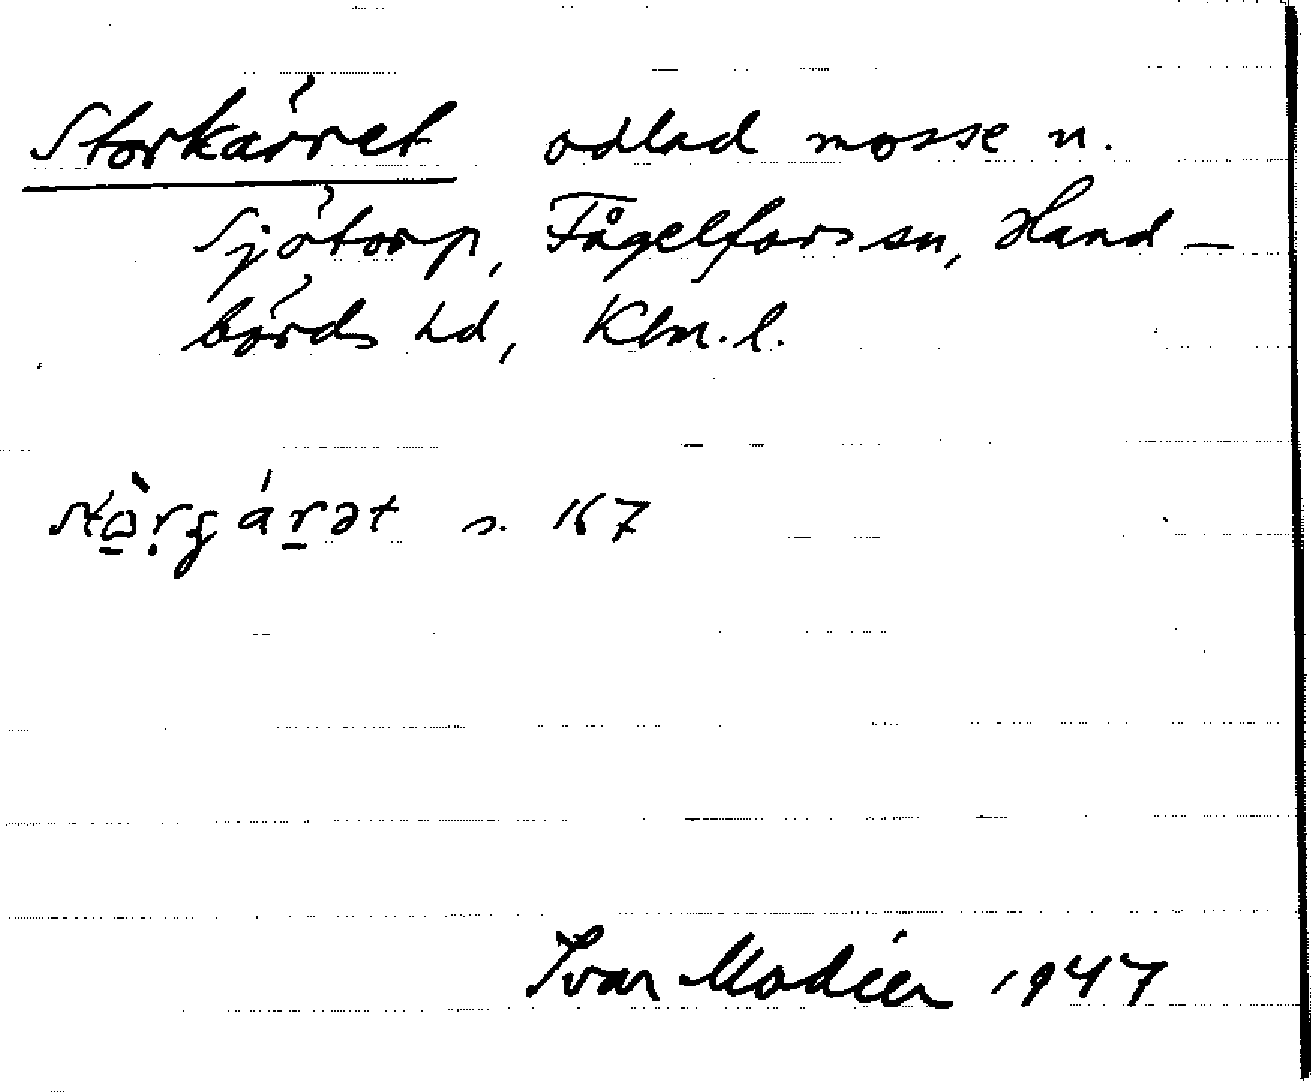 Storkärret odlad mosse n.
Sjötorp, Fågelfors sn, Hand-
börds hd, Klm.l.
s. 167
Ivar Modéer 1947